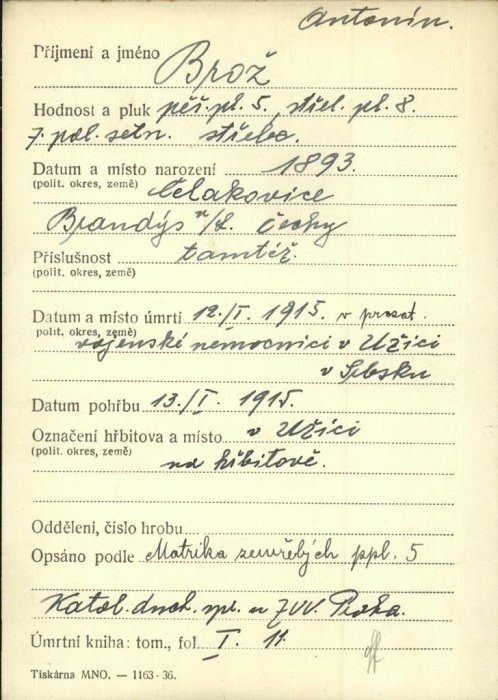 Antonín.
Příjmení a jméno Brož
Hodnost a pluk pěš. pl. 5, střel. pl. 8.
7. pol. setn. střelec.
Datum a místo narození 1893.
(polit. okres, země) Čelakovice
Brandýs n/L. Čechy
Příslušnost tamtéž.
(polit. okres, země)
Datum a místo úmrtí 12./I. 1915. v
polit. okres, země) vojenské nemocnici v Užici
v Srbsku
Datum pohřbu 13./I. 1915.
Označení hřbitova a místo v Užici
(polit. okres, země) na hřbitově.
Oddělení, číslo hrobu
Opsáno podle Matrika zemřelých ppl. 5
Katol. duch. spr. u ZVV. Praha.
Úmrtní kniha: tom., fol. I. 11.
Tiskárna MNO. — 1163-36.